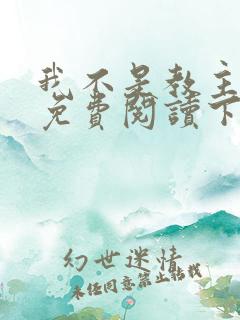 我不是教主
免費閱讀下
幻世迷情
未经同意禁止转载